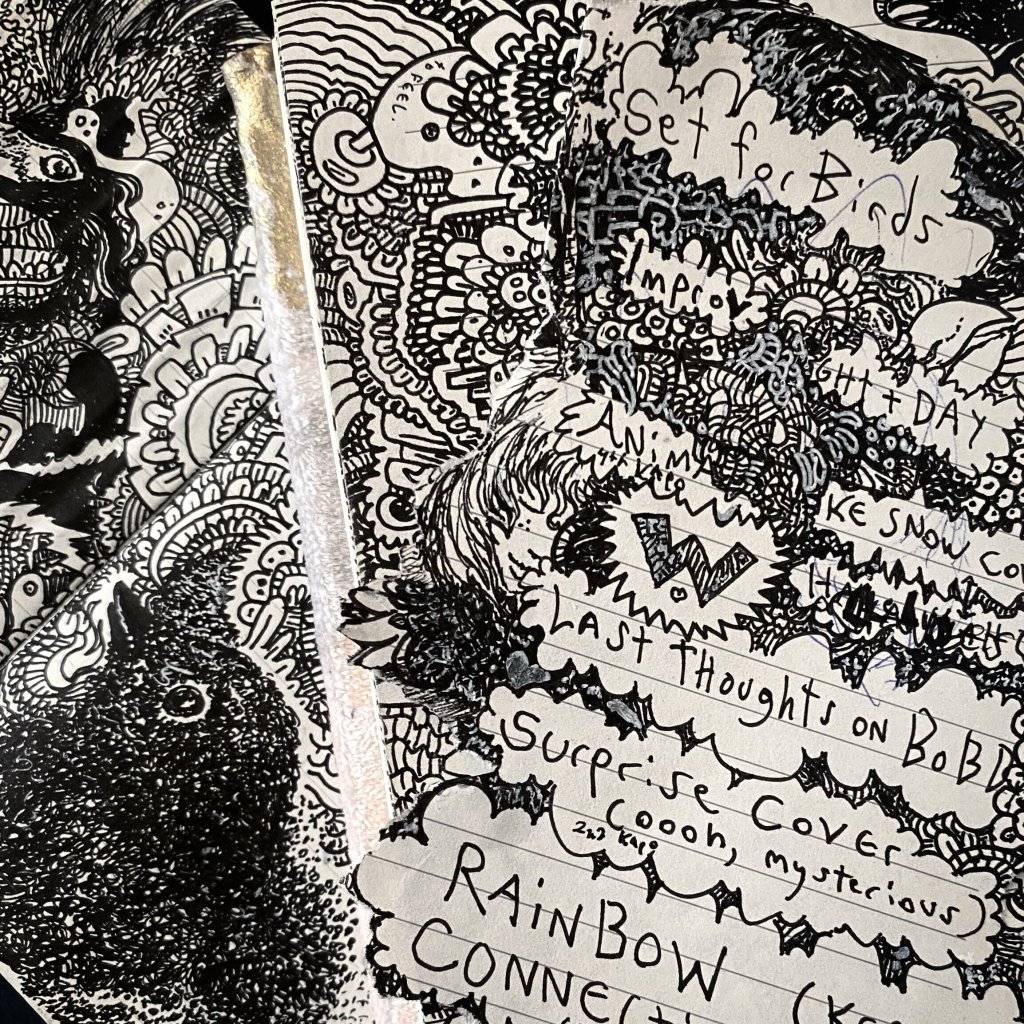 to feel
Set for Birds
Improv
GHT + DAY
ANIMA
KE SNOW CO
W
LAST THOUGHTS ON BOBD
Surprise Cover
(oooh, mysterious)
RAINBOW
CONNECTI